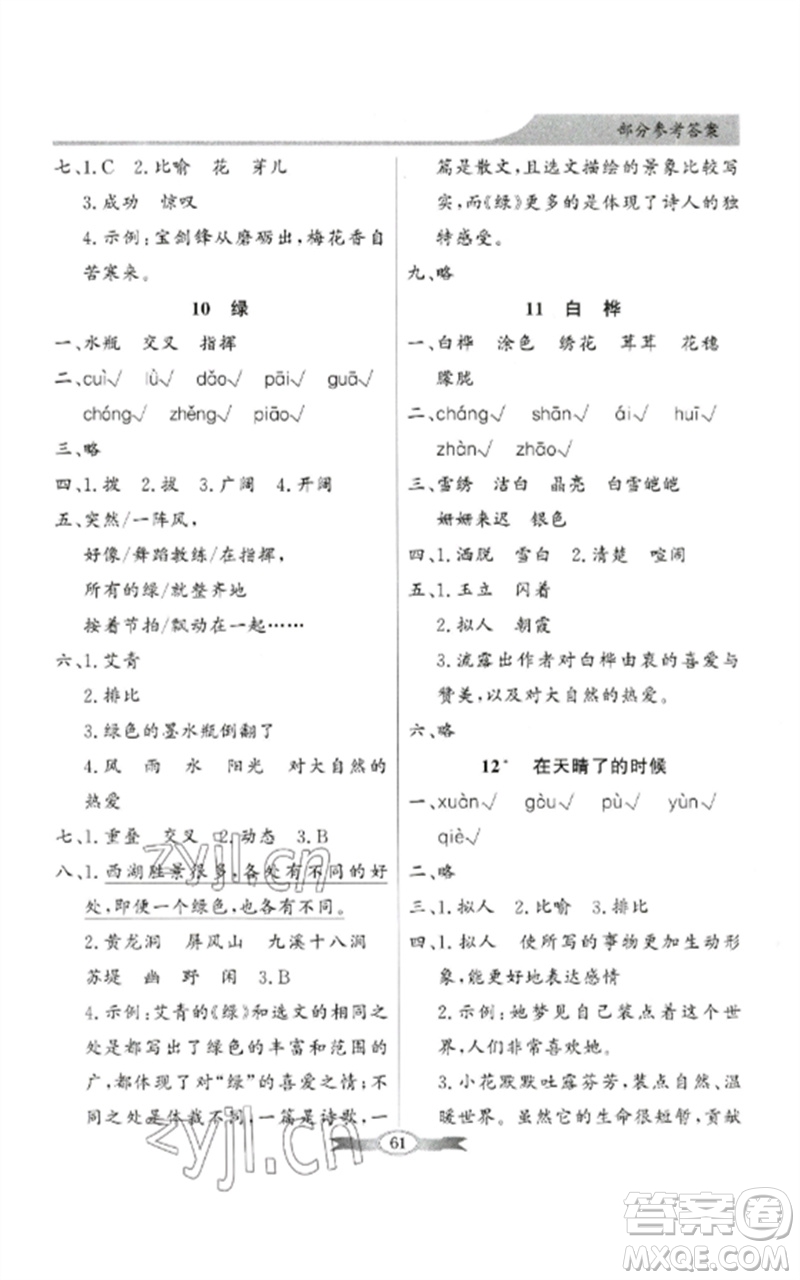 部分参考答案
七、1.C 2.比喻 花 芽儿
3.成功 惊叹
4.示例:宝剑锋从磨砺出,梅花香自
苦寒来。
10 绿
一、水瓶 交叉 指挥
二、cuì√ lù√ dǎo√ pāi√ guā√
chóng√ zhěng√ piāo√
三、略
四、1.拨 2.拔 3.广阔 4.开阔
五、突然/一阵风,
好像/舞蹈教练/在指挥,
所有的绿/就整齐地
按着节拍/飘动在一起……
六、1.艾青
2.排比
3.绿色的墨水瓶倒翻了
4.风 雨 水 阳光 对大自然的
热爱
七、1.重叠 交叉 2.动态 3.B
八、1.西湖胜景很多,各处有不同的好
处,即便一个绿色,也各有不同。
2.黄龙洞 屏风山 九溪十八涧
苏堤 幽 野 闲 3.B
4.示例:艾青的《绿》和选文的相同之
处是都写出了绿色的丰富和范围的
广,都体现了对“绿”的喜爱之情;不
同之处是体裁不同,一篇是诗歌,一
篇是散文,且选文描绘的景象比较写
实,而《绿》更多的是体现了诗人的独
特感受。
九、略
11 白桦
一、白桦 涂色 绣花 茸茸 花穗
朦胧
二、cháng√ shān√ ái√ huī√
zhàn√ zhāo√
三、雪绣 洁白 晶亮 白雪皑皑
姗姗来迟 银色
四、1.洒脱 雪白 2.清楚 喧闹
五、1.玉立 闪着
2.拟人 朝霞
3.流露出作者对白桦由衷的喜爱与
赞美,以及对大自然的热爱。
六、略
12* 在天晴了的时候
一、xuàn√ gòu√ pù√ yùn√
qiè√
二、略
三、1.拟人 2.比喻 3.排比
四、1.拟人 使所写的事物更加生动形
象,能更好地表达感情
2.示例:她梦见自己装点着这个世
界,人们非常喜欢她。
3.小花默默吐露芬芳,装点自然、温
暖世界。虽然它的生命很短暂,贡献
61
zyjl.cn
zyjl.cn
答案卷
MXQE.COM